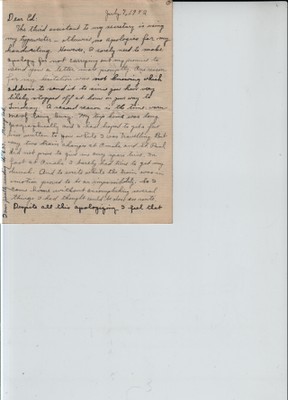 July 7, 19
Dear Ed:
The third assistant to my secretary is using
my typewriter - otherwise, no apologies for my
handwriting. However, I surely need to make
apology for not carrying out my promise to
send you a letter more promptly. One reason
for my hesitation was not knowing which
address to send it to since you have very
likely stopped off at home on your way to
Lindsay. A second reason is the time worn
one of being busy. My trip home was long
geographically and I had hoped to get a
letter to you while I was travelling. But
my two train changes at Omaha and St Paul
did not prove to give me any spare time. In
fact at Omaha I barely had time to get my
lunch. And to write while the train was in
motion proved to be an impossibility. So I
came home without accomplishing several
things I had thought could be done en route.
Despite all this apologizing I feel that